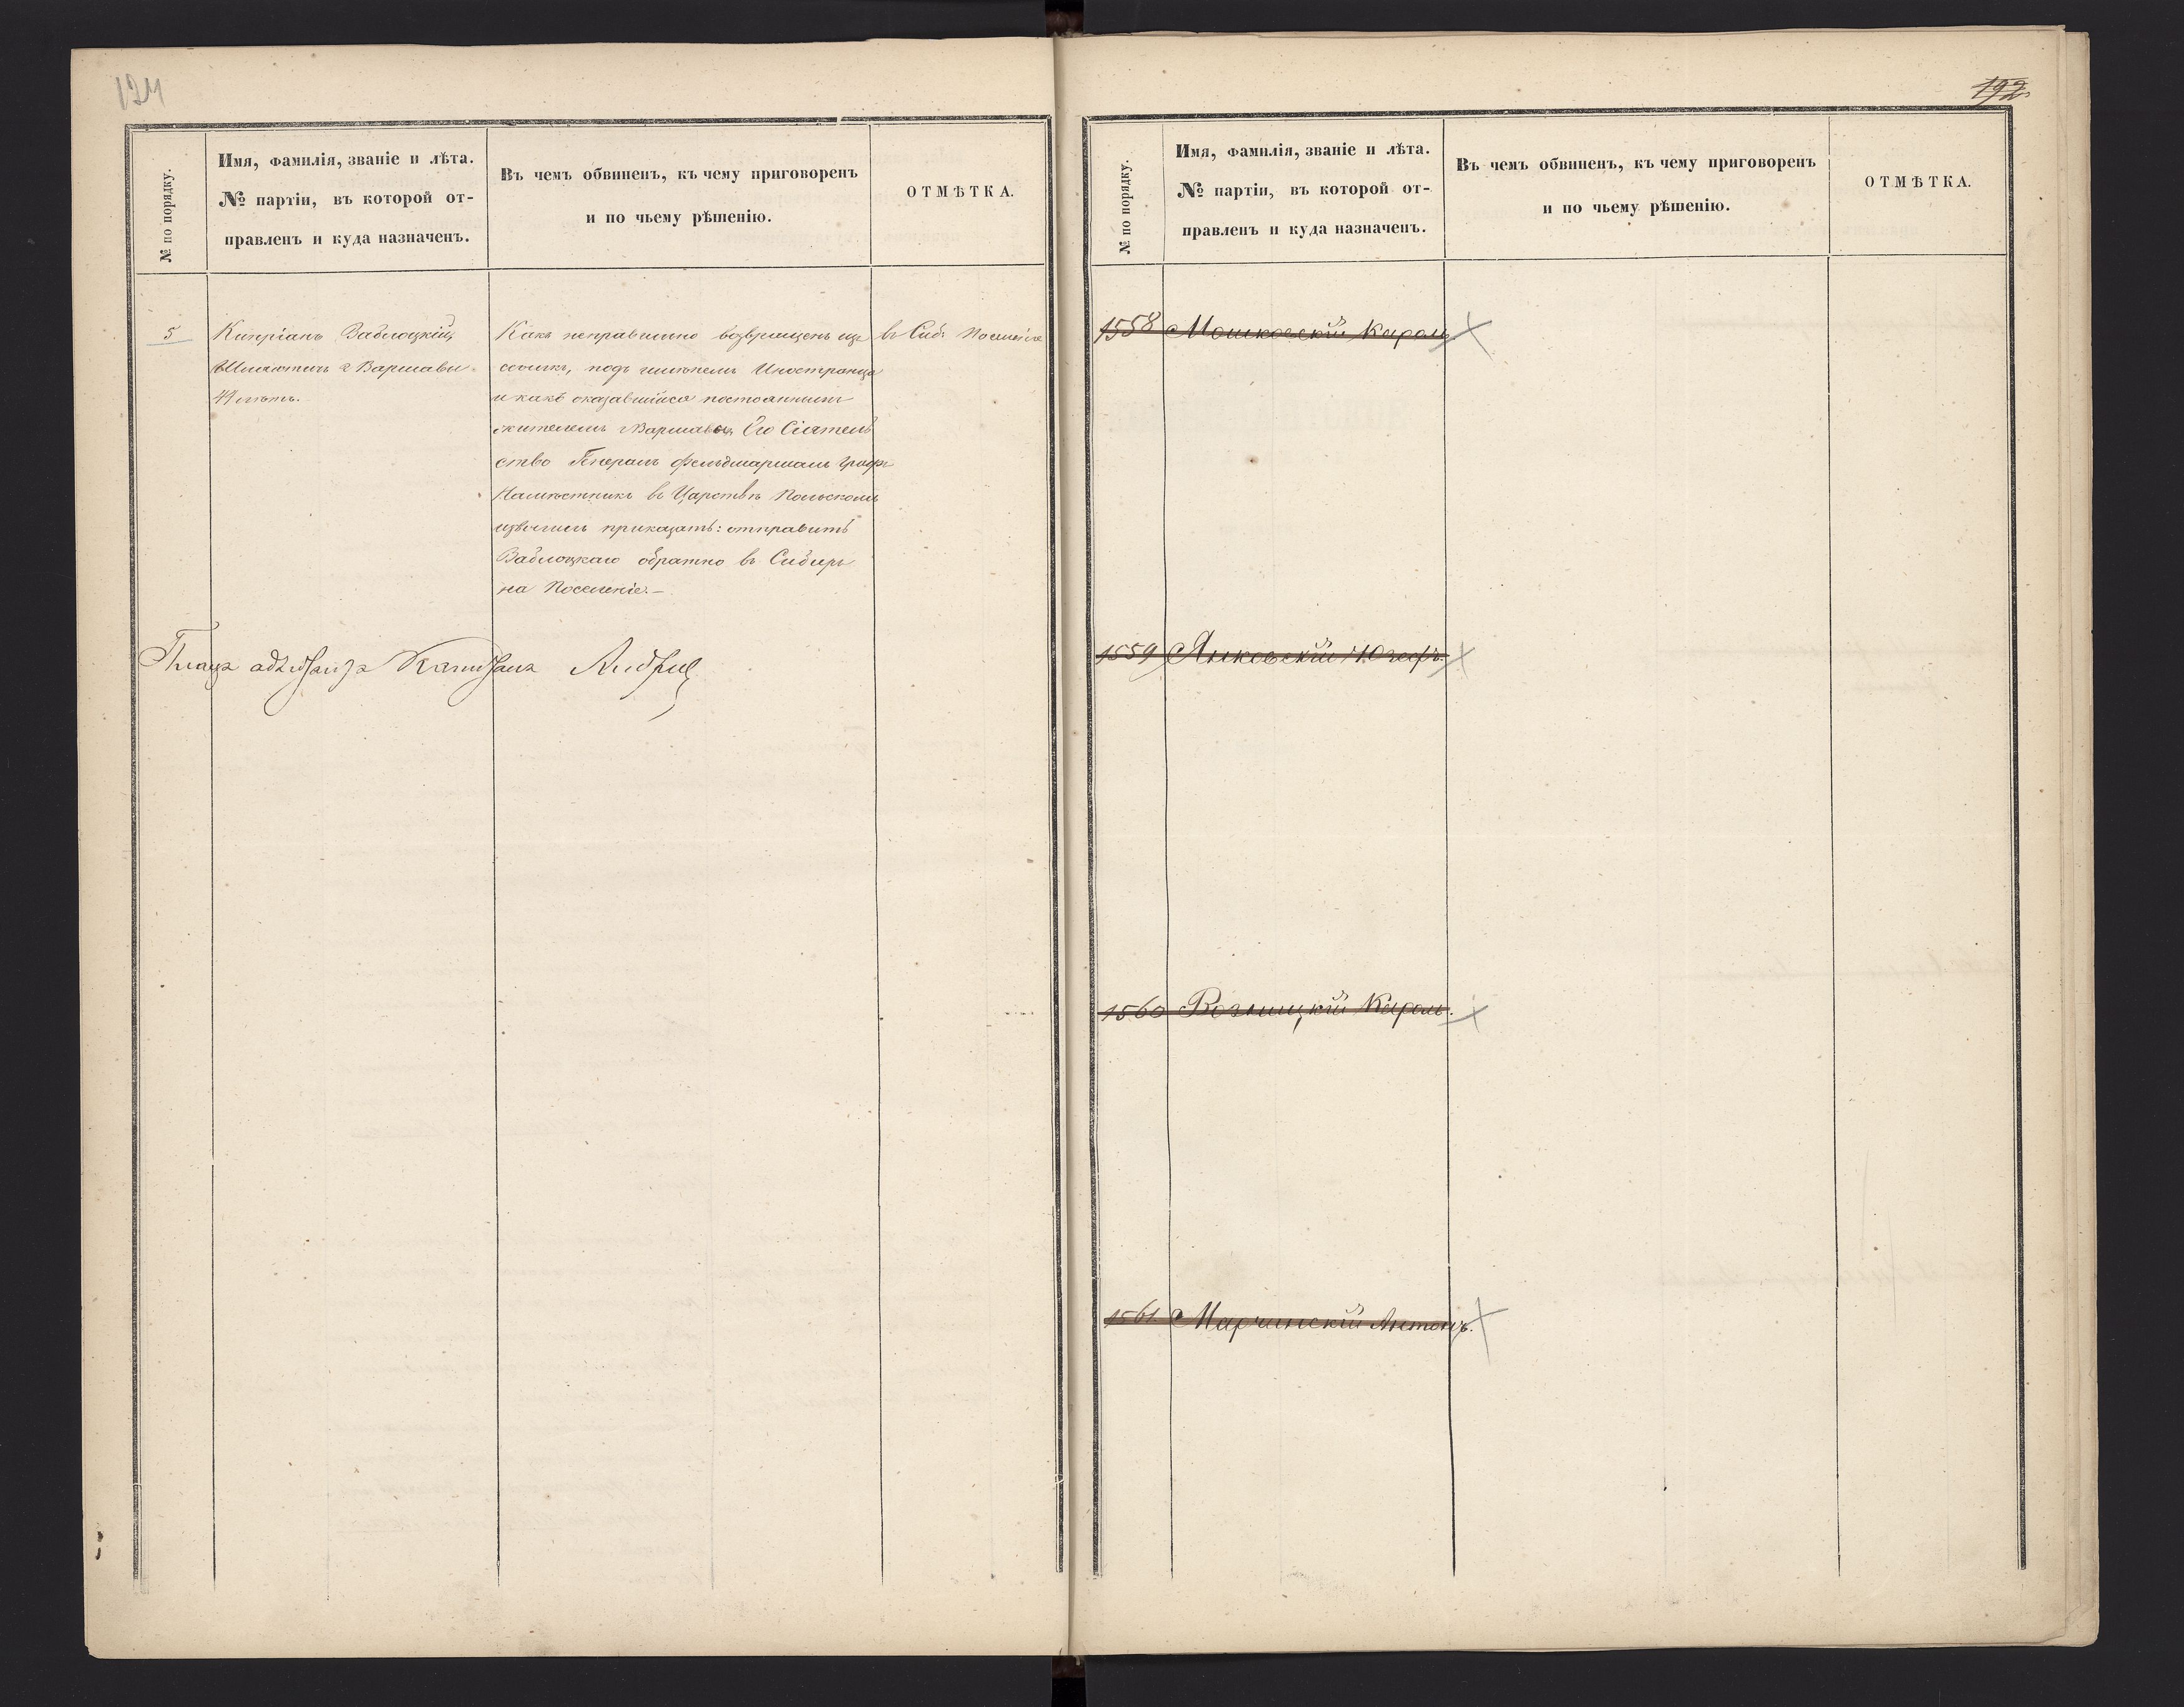 124
№ по порядку.
Имя, фамилія, званіе и лѣта.
№ партіи, въ которой от-
правленъ и куда назначенъ.
Въ чемъ обвиненъ, къ чему приговоренъ
и по чьему рѣшенію.
ОТМѢТКА.
5
Кипріанъ Заблоцкій,
Шляхтичъ г Варшавы
44 лѣтъ.
Какъ неправильно возвращенъ изъ
ссылки, подъ именемъ Иностранца
и какъ оказавшійся постояннымъ
жителемъ г Варшавы, Его Сіятель
ство Генералъ Фельдмаршалъ Графъ
Намѣстникъ въ Царствѣ Польскомъ
изволилъ приказать: отправить
Заблоцкаго обратно въ Сибирь
на Поселеніе.—
въ Сиб. Поселеніе
Плацъ адъютантъ Капитанъ
192
№ по порядку.
Имя, фамилія, званіе и лѣта.
№ партіи, въ которой от-
правленъ и куда назначенъ.
Въ чемъ обвиненъ, къ чему приговоренъ
и по чьему рѣшенію.
ОТМѢТКА.
1558 Мошковскій Кароль
1559 Янковскій Юзефъ.
1560 Возницкій Кароль.
1561 Марчинскій Антонъ.